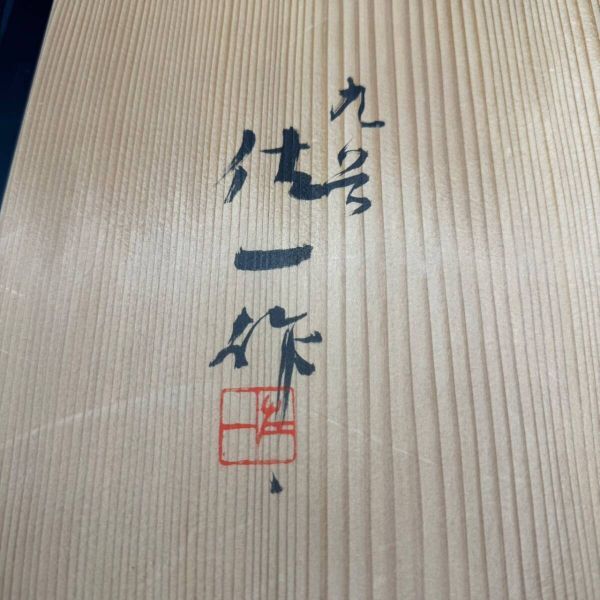 九谷
佐一作